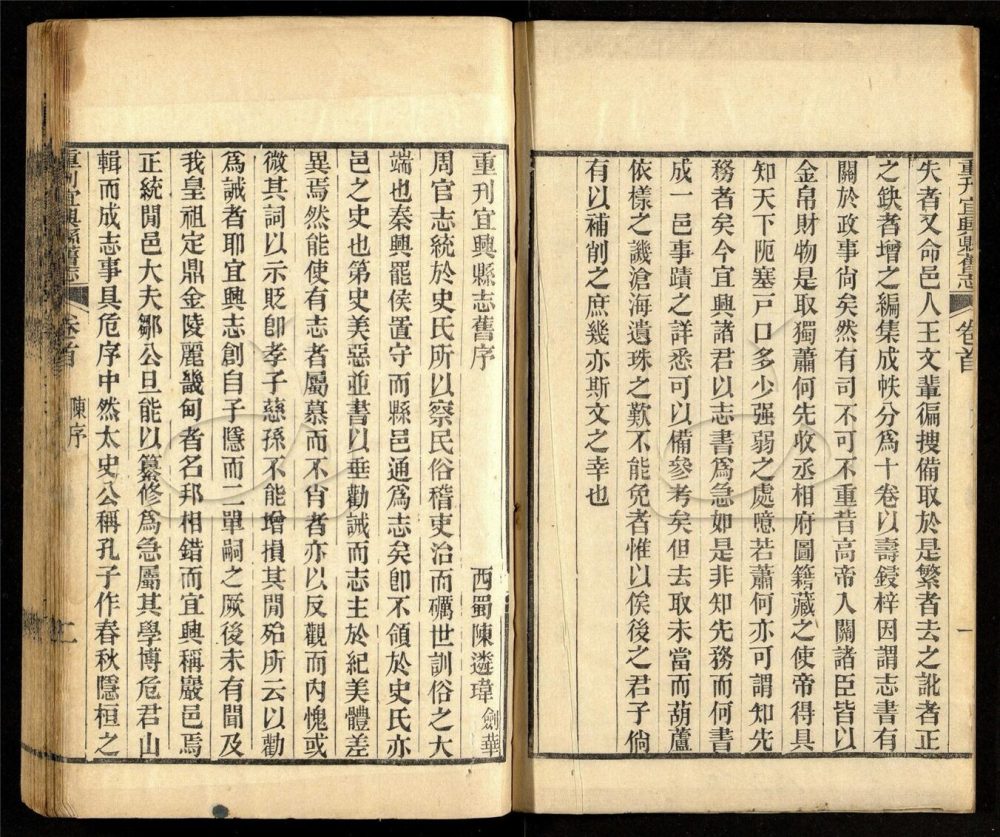 重刊宜興縣舊志
卷首
一
失者又命邑人王文輩徧搜備取於是繁者去之訛者正
之缺者增之編集成帙分爲十卷以壽鋟梓因謂志書有
關於政事尚矣然有司不可不重昔高帝入關諸臣皆以
金帛財物是取獨蕭何先收丞相府圖籍藏之使帝得具
知天下阨塞戸口多少强弱之處噫若蕭何亦可謂知先
務者矣今宜興諸君以志書爲急如是非知先務而何書
成一邑事蹟之詳悉可以備參考矣但去取未當而葫蘆
依樣之譏滄海遺珠之歎不能免者惟以俟後之君子倘
有以補削之庶幾亦斯文之幸也
重刊宜興縣志舊序
西蜀陳遴瑋劍華
周官志統於史氏所以察民俗稽吏治而礪世訓俗之大
端也秦興罷侯置守而縣邑通爲志矣卽不領於史氏亦
邑之史也第史美惡並書以垂勸誡而志主於紀美體差
異焉然能使有志者屬慕而不肖者亦以反觀而内愧或
微其詞以示貶卽孝子慈孫不能增損其閒殆所云以勸
爲誡者耶宜興志創自子隱而一單嗣之厥後未有聞及
我皇祖定鼎金陵麗畿甸者名邦相錯而宜興稱巖邑焉
正統閒邑大夫鄒公旦能以纂修爲急屬其學博危君山
輯而成志事具危序中然太史公稱孔子作春秋隱桓之
重刊宜興縣舊志
卷首
陳序
二